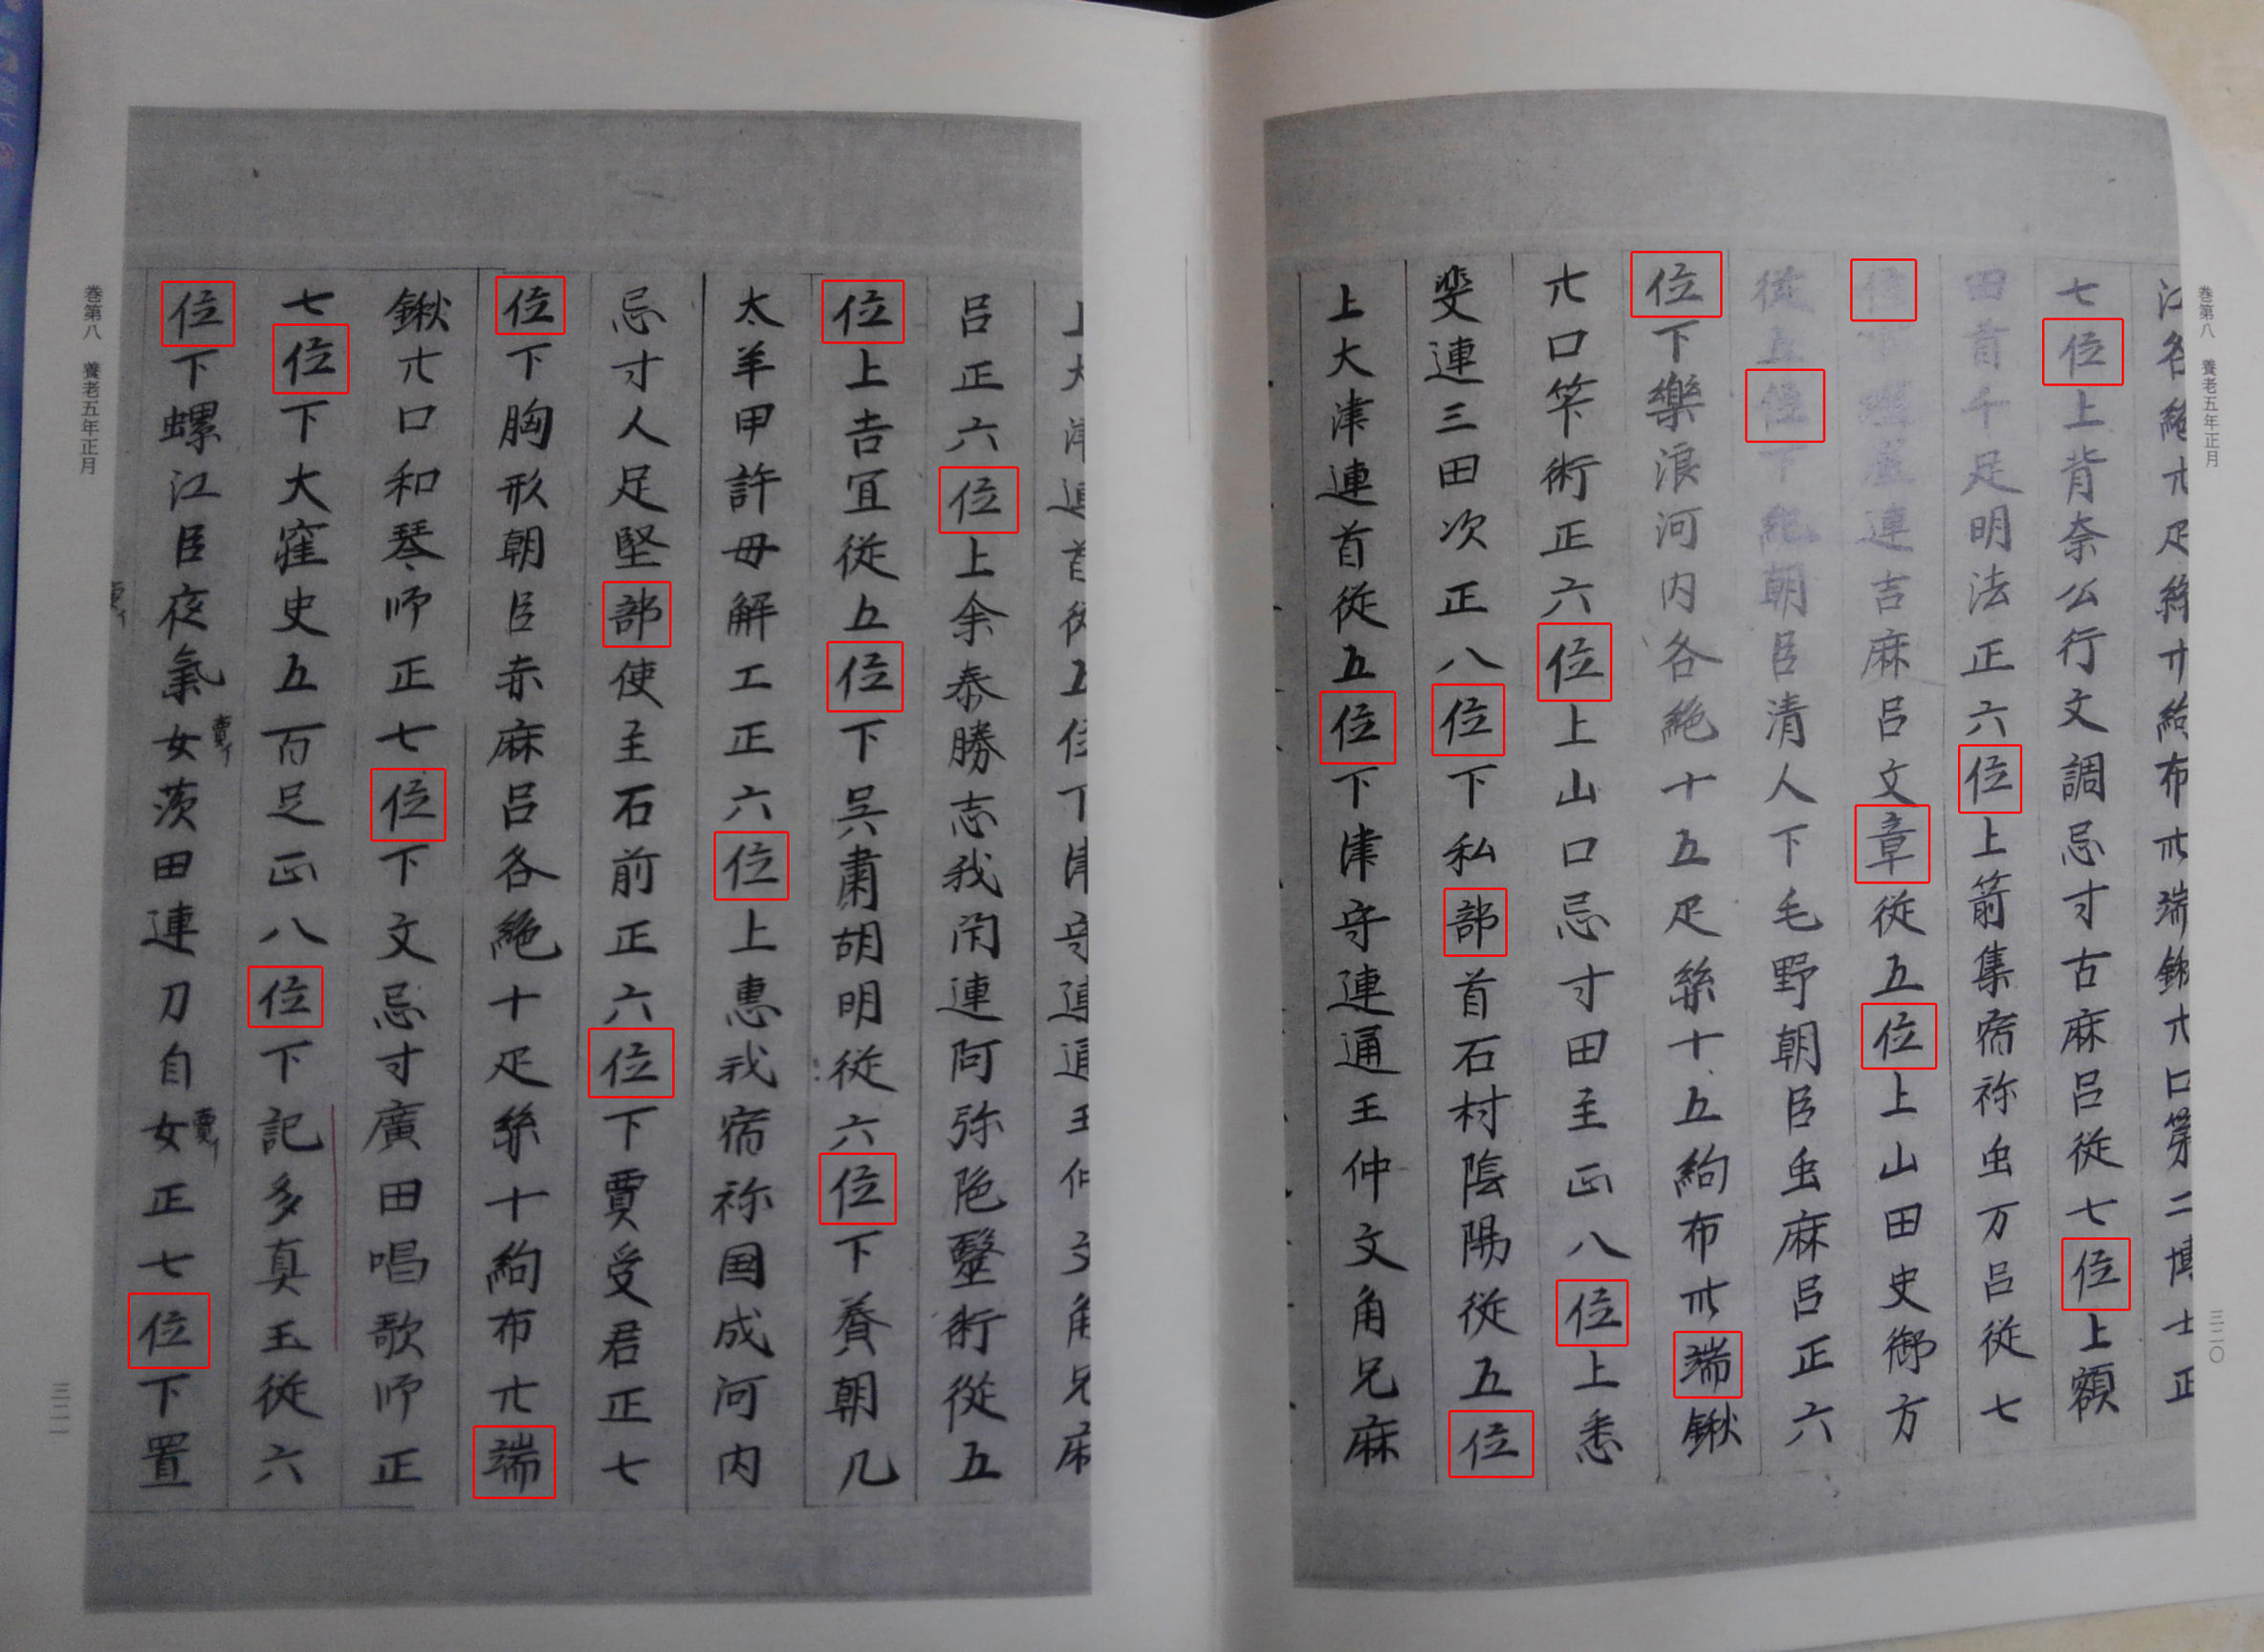 巻第八 養老五年正月
三二〇
江各絁十疋絲十絇布卅端鍬十口第二博士正
七位上背奈公行文調忌寸古麻呂従七位上額
田首千足明法正六位上箭集宿祢虫万呂従七
位下塩屋連吉麻呂文章従五位上山田史御方
従五位下紀朝臣清人下毛野朝臣虫麻呂正六
位下樂浪河内各絁十五疋絲十五絇布卅端鍬
廾口竿術正六位上山口忌寸田主正八位上悉
斐連三田次正八位下私部首石村陰陽従五位
上大津連首従五位下津守連通王仲文角兄麻
上大津連首従五位下津守連通王仲文角兄麻
呂正六位上余泰勝志我閇連阿弥陁毉術従五
位上吉冝従五位下呉肅胡明従六位下養朝几
太羊甲許毋解工正六位上惠我宿祢国成河内
忌寸人足堅部使主石前正六位下賈受君正七
位下胸形朝臣赤麻呂各絁十疋絲十絇布廾端
鍬廾口和琴師正七位下文忌寸廣田唱歌師正
七位下大窪史五百足正八位下記多真玉従六
位下螺江臣夜氣女茨田連刀自女正七位下置
賣イ
賣イ
賣イ
巻第八 養老五年正月
三二一